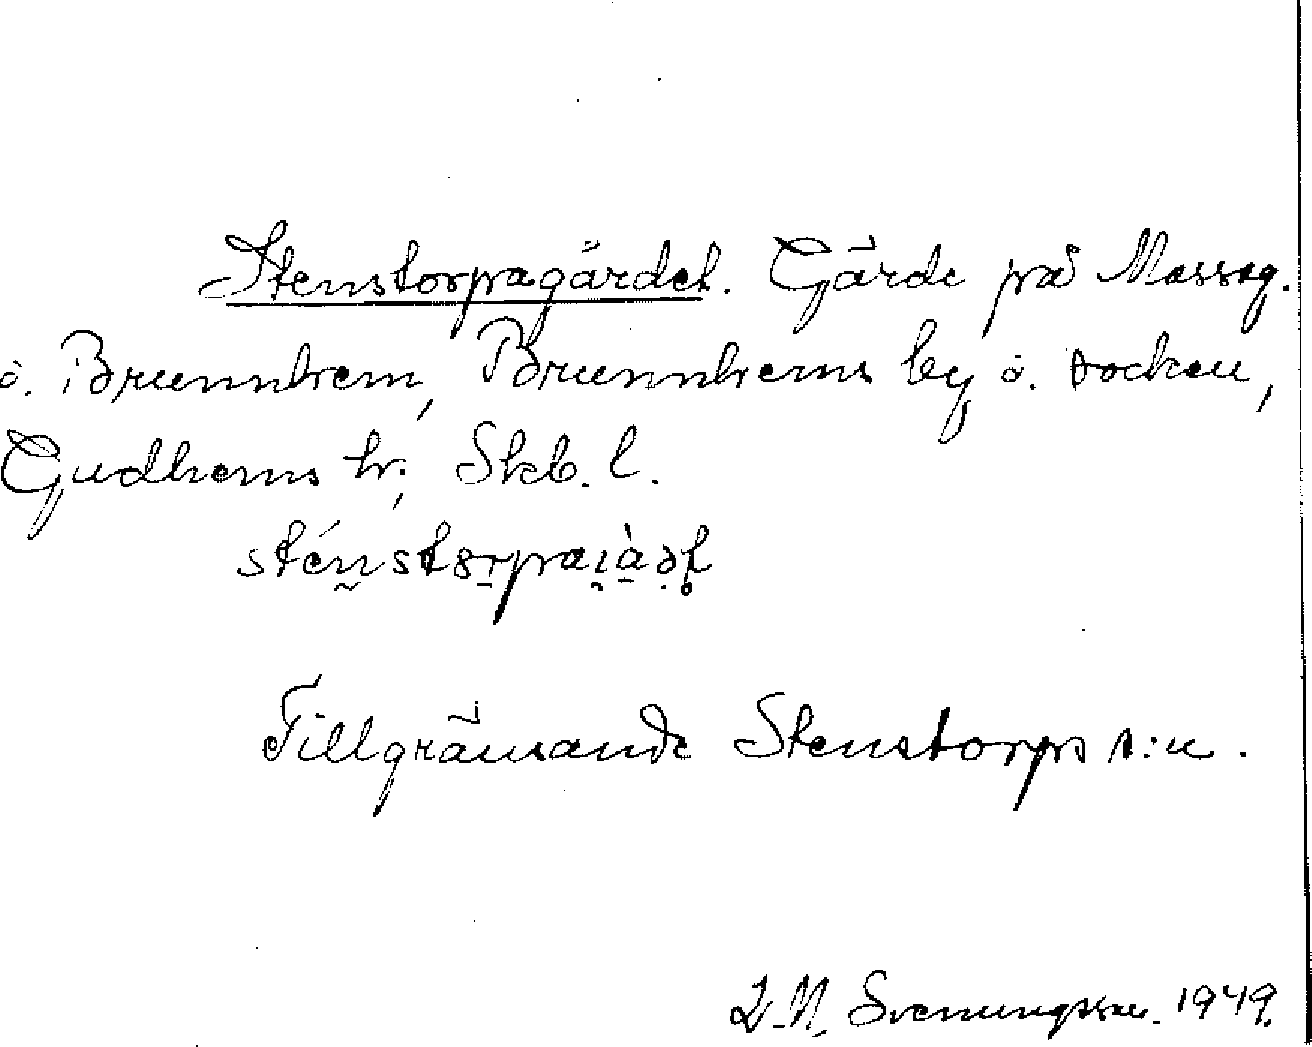 Stenstorpagärdet. Gärde på Massag.
i. Brunnhem, Brunnhems by i. socken,
Gudhems hr, Skb. l.
Tillgränsande Stenstorps s:n.
Svenungsson. 1949.